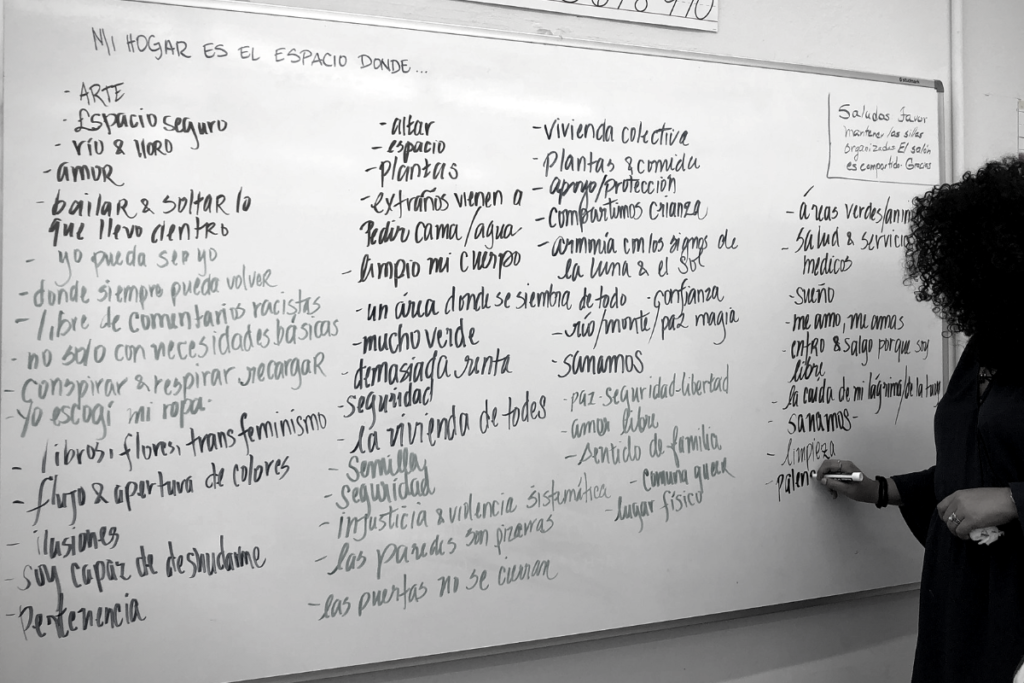 MI HOGAR ES EL ESPACIO DONDE...
- ARTE
- Espacio seguro
- río & lloro
- amor
- bailar & soltar lo
que llevo dentro
- yo pueda ser yo
- donde siempre pueda volver
- libre de comentarios racistas
- no solo con necesidades básicas
- conspirar & respirar, recargar
- Yo escogí mi ropa.
- libros, flores, transfeminismo
- flujo & apertura de colores
- ilusiones
- soy capaz de desnudarme
- Pertenencia
- altar
- espacio
- plantas
- extraños vienen a
Pedir cama/agua
- limpio mi cuerpo
- un área donde se siembra de todo
- mucho verde
- demasiada junta
- seguridad
- la vivienda de todes
- Semillas
- seguridad
- injusticia & violencia sistemática
- las paredes son pizarras
- las puertas no se cierran
- vivienda colectiva
- Plantas & comida
- apoyo/protección
- compartimos crianza
- armonía con los signos de
la luna & el sol
- confianza
- río/monte/paz magia
- sanamos
- paz-seguridad-libertad
- amor libre
- Sentido de familia
- comuna queer
- lugar físico
Saludos Favor
mantener las sillas
organizadas. El salón
es compartido. Gracias
- áreas verdes/
- Salud & servicio
medicos
- sueño
- me amo, me amas
- entro & salgo porque soy
libre
- la caida de mi lágrima/de la
- sanamos-
- limpieza